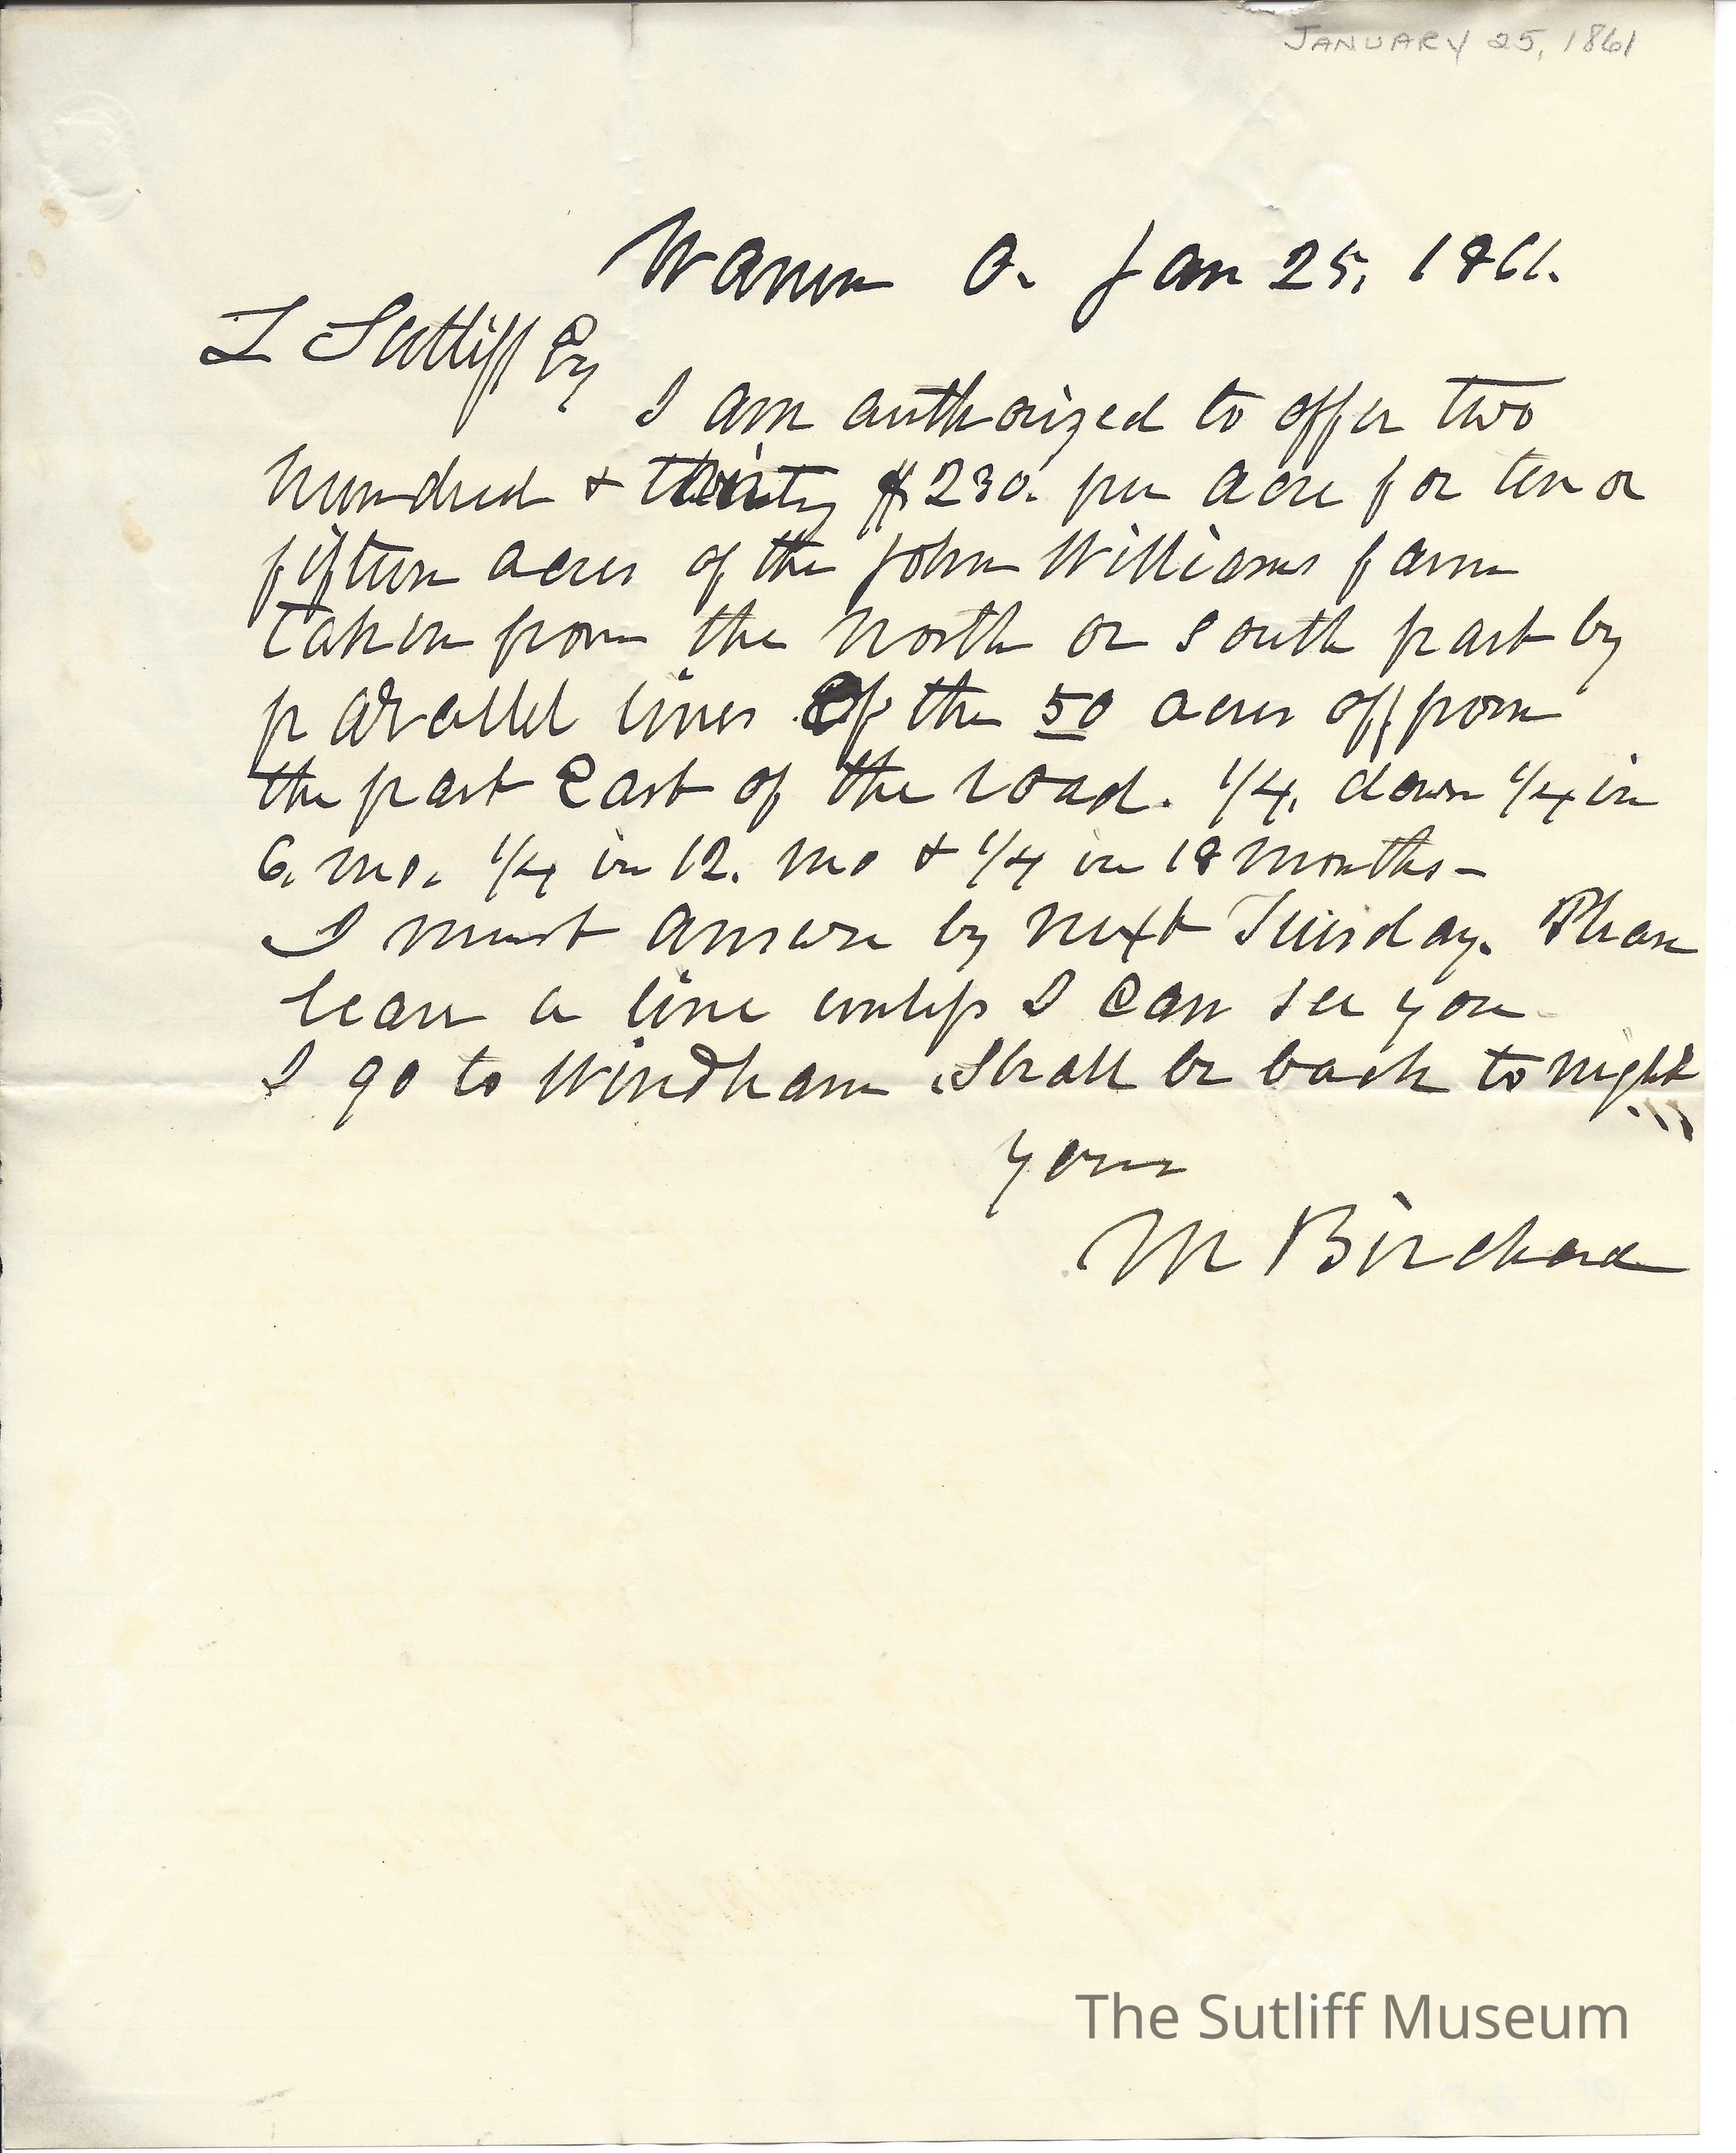 JANUARY 25, 1861
Warren O. Jan 25, 1861.
L Sutliff Esq
I am authorized to offer two
hundred & thirty $230. per acre for ten or
fifteen acres of the John Williams farm
taken from the North or South part by
parallel lines of the 50 acres off from
the part East of the road. 1/4, down 1/4 in
6, mo. 1/4 in 12. mo & 1/4 in 18 months -
I must answer by next Tuesday. Please
leave a line unless I can see you
I go to Windham. Shall be back to night
yours
M Birchard
The Sutliff Museum